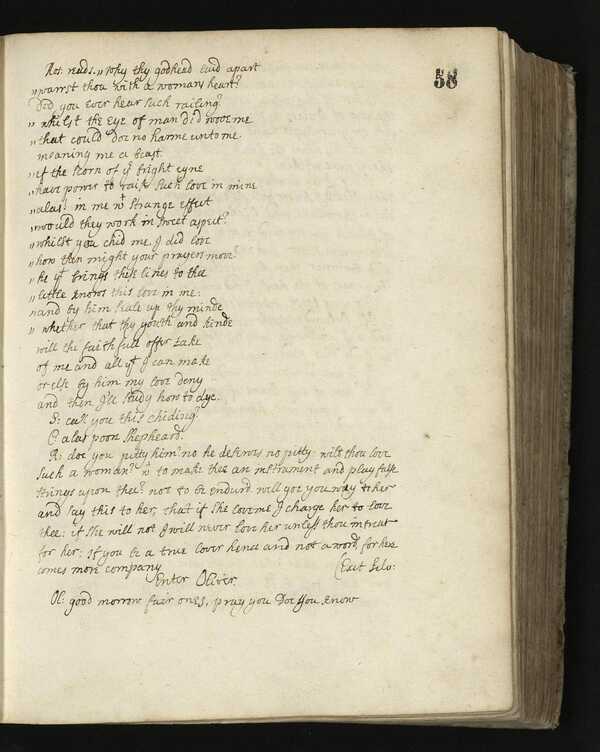 58
Ros. reads. „Why thy godhead laid apart
„warrst thou with a womans heart?
Did you ever hear such railing?
„whilst the Eye of man did wooe me
„that could doe no harme unto me.
meaning me a beast.
„if the scorn of yr bright eyne
„have power to raise such love in mine
„alas! in me wt strange effect
„would they work in sweet aspect?
„whilst you chid me, I did love
„how then might your prayers move?
„he yt brings these lines to thee
„little knows this love in me:
„and by him seale up thy minde
„whether that thy youth and kinde
will the faithfull offer take
of me and all yt I can make
or else by him my love deny
and then I'le study how to dye.
S: call you this chiding?
C. alas poor Shepheard.
R: doe you pitty him? no he deserves no pitty: wilt thou love
such a woman? wt to make thee an instrument and play false
strings upon thee? not to be endurd. will goe you way to her
and say this to her, that if she love me I charge her to love
thee: if she will not I will never love her unless thou intreat
for her: if you be a true lover hence and not a word, for here
comes more company. (Exit Silv:
Enter Oliver.
Ol: good morrow fair ones, pray you Doe you know